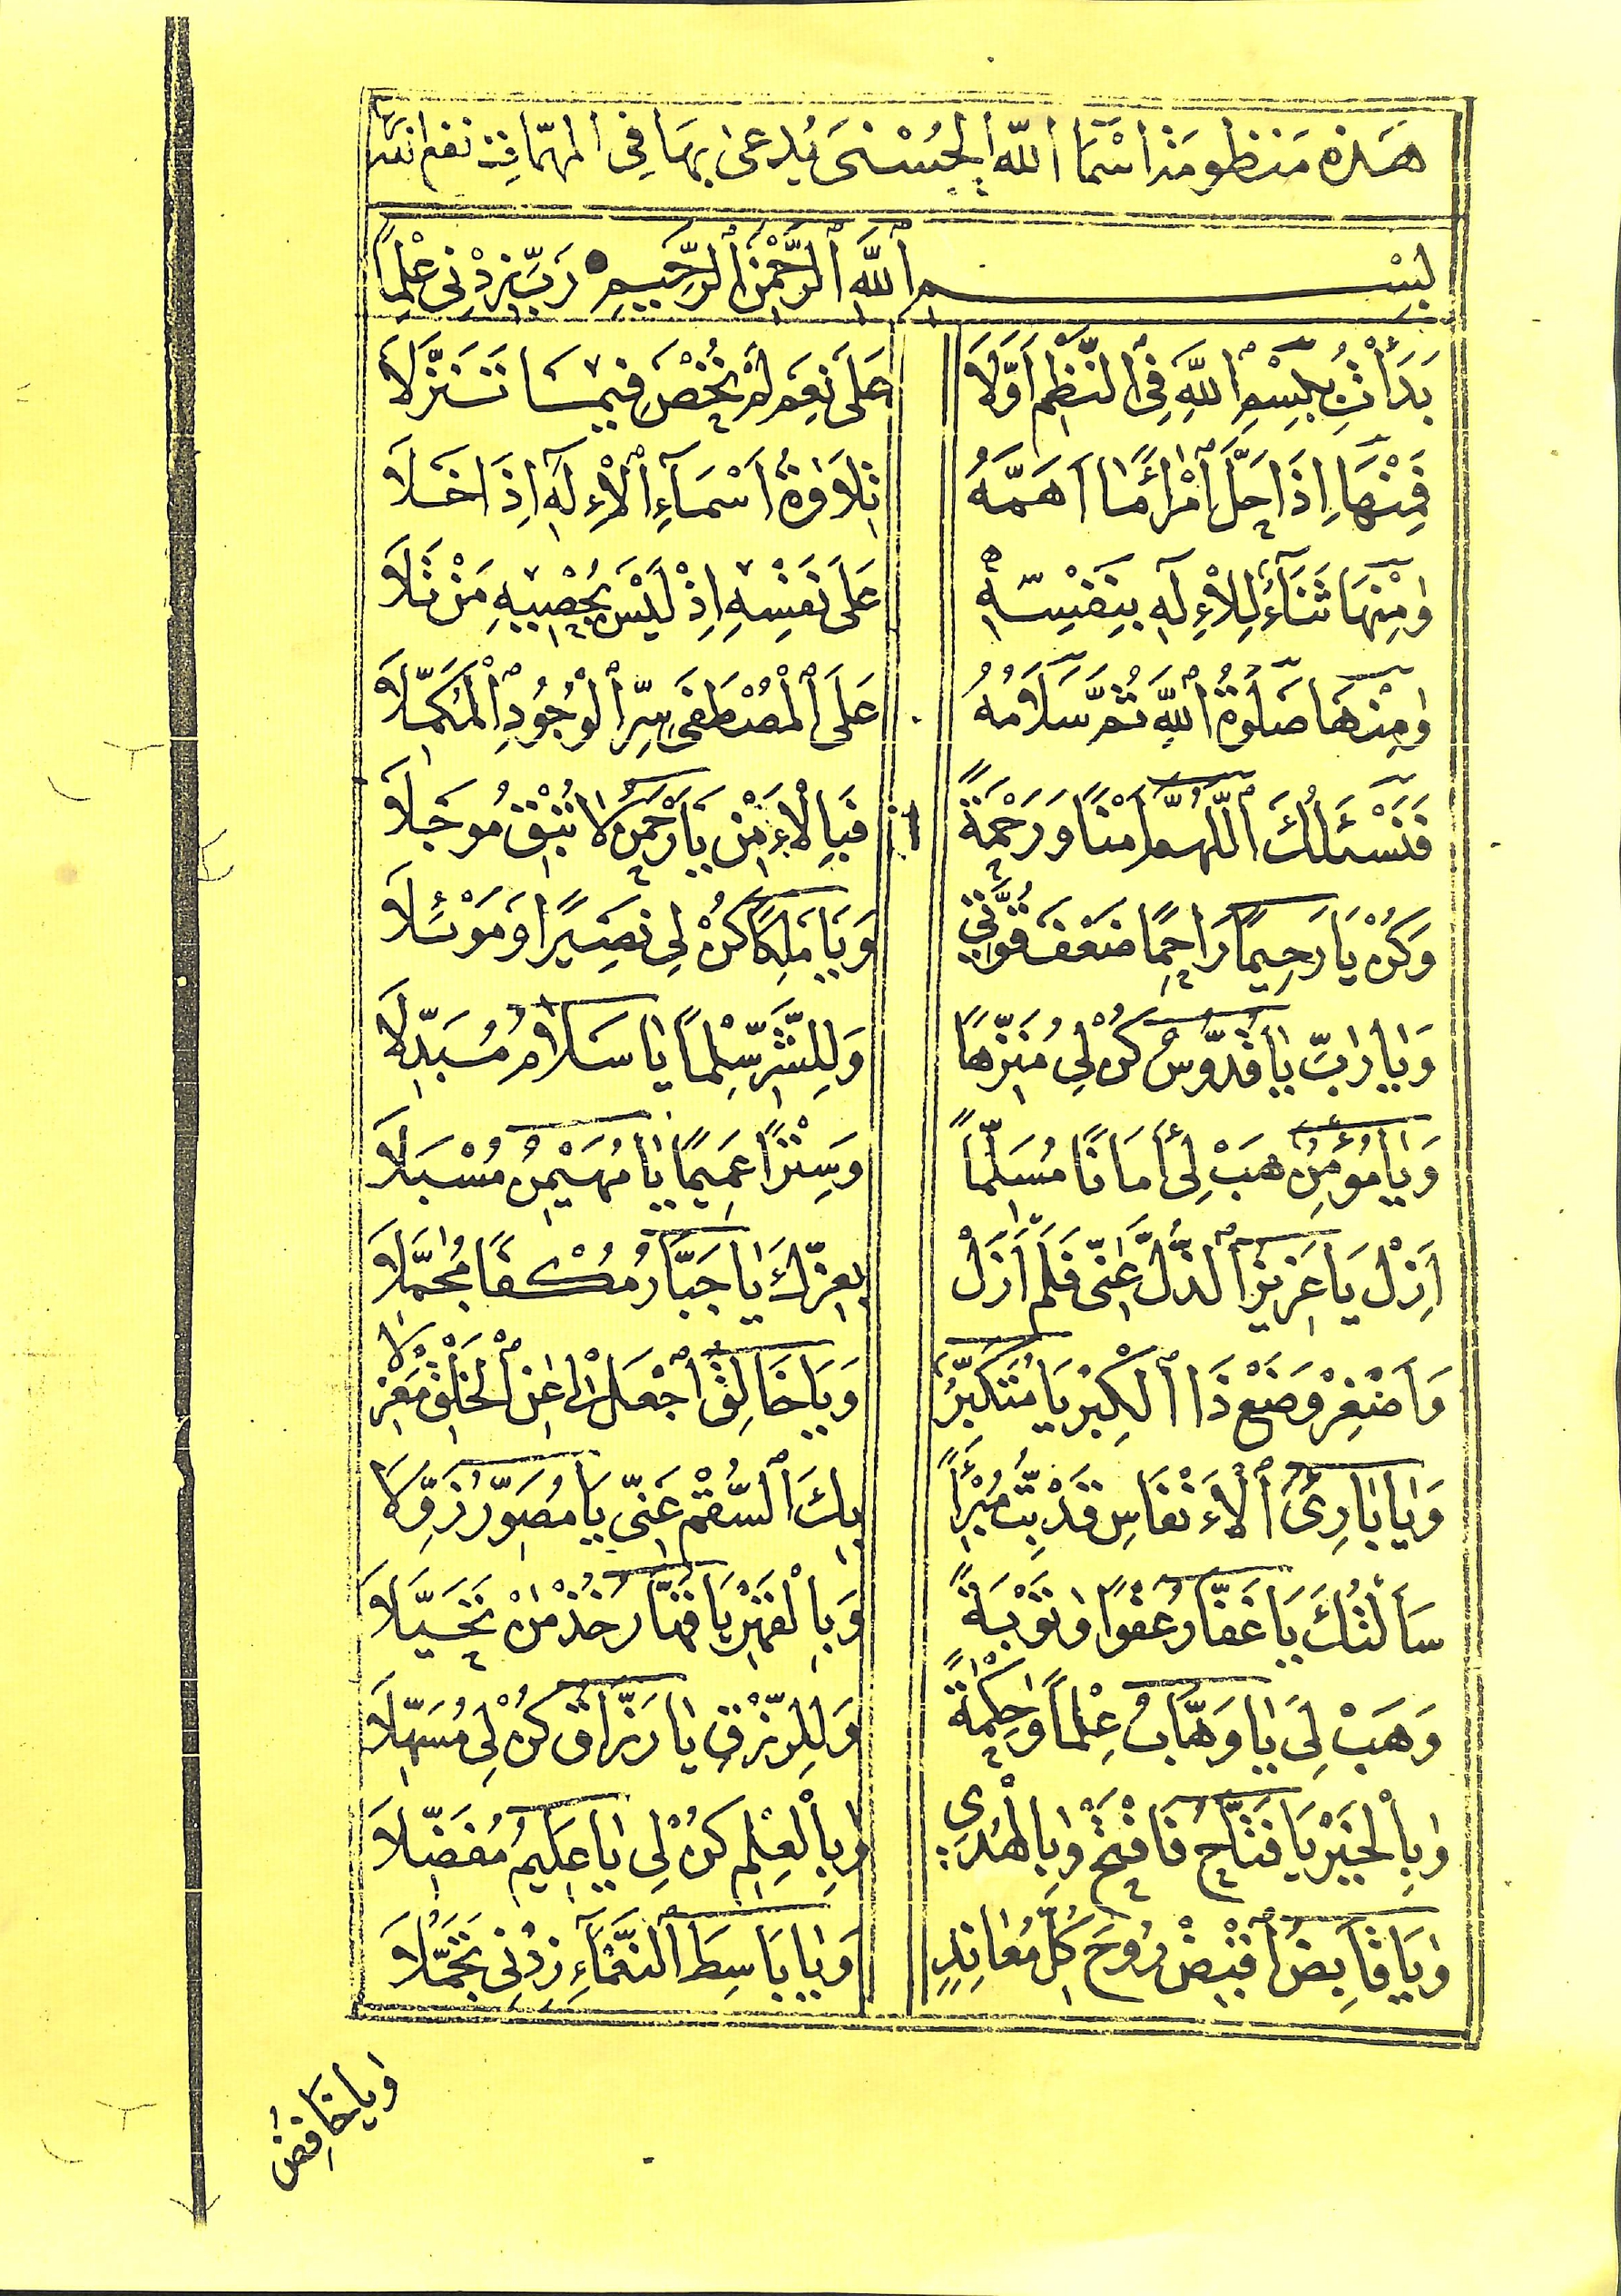 هَذِه مَنظومَة اسْمَا اللّه الحُسْنىَ يُدعىٰ بهَا فِى المهمّات نفع الله بها
بِسْمِ اللَّهِ الرَّحْمٰنِ الرَّحِيمِ رَبِّ زِدْنِى عِلْماً
بَدَأْتُ بِبِسْمِ اللَّهِ فِى النَّظْمِ أَوَّلَا عَلَى نِعَمٍ لَمْ تُحْصَ فِيمَا تَنَزَّلَا
فَمِنْهَا اِذَا حَلَّ امْرَأً مَا اَهَمَّهُ تِلَاوَةُ اَسْمَآءِ الْاِلَهِ اِذَا خَلَا
وَمِنْهَا ثَنَآءٌ لِلْاِلَهِ بِنَفْسِهِ عَلَى نَفْسِهِ اِذْ لَيْسَ يُحْصِيهِ مَنْ تَلَا
وَمِنْهَا صَلَوةُ اللَّهِ ثُمَّ سَلَامُهُ عَلَى الْمُصْطَفَى سِرِّ الْوُجُودِ الْمُكَمَّلَا
فَنَسْئَلُكَ اللَّهُمَّ اَمْنًا وَرَحْمَةً فَبِالْاَمْنِ يَا رَحْمٰنُ لَا تُبْقِ مُوجَلَا
وَكُنْ يَا رَحِيمًا رَاحِمًا ضَعْفَ قُوَّتِى وَيَا مَلِكًا كُنْ لِى نَصِيرًا وَمَوْئِلَا
وَيَا رَبِّ يَا قُدُّوسُ كُنْ لِى مُنَزِّهًا وَلِلشَّرِّ سِلْماً يَا سَلَامُ مُبَدِّلَا
وَيَا مُؤْمِنُ هَبْ لِى أَمَانًا مُسَلَّماً وَسِتْرًا عَمِيمًا يَا مُهَيْمِنُ مُسْبَلَا
اَزِلْ يَا عَزِيزُ الذُّلَّ عَنِّى فَلَمْ اَزَلْ بِعِزِّكَ يَا جَبَّارُ مُكْفًا مُجَمَّلَا
وَاَصْغِرْ وَضَعْ ذَا الْكِبْرِ يَا مُتَكَبِّرُ وَيَا خَالِقُ اجْعَلْ لِى عَنِ الْخَلْقِ مَعْزِلَا
وَيَا بَارِئَ الْاَنْفَاسِ قَدْ بِتُّ مُبْرِأً بِكَ السُّقْمَ عَنِّى يَا مُصَوِّرُ زَوِّلَا
سَأَلْتُكَ يَا غَفَّارُ عَفْوًا وَتَوْبَةً وَبِالْقَهْرِ يَا قَهَّارُ خُذْ مَنْ تَحَيَّلَا
وَهَبْ لِىَ يَا وَهَّابُ عِلْماً وَحِكْمَةً وَلِلرِّزْقِ يَا رَزَّاقُ كُنْ لِى مُسَهِّلَا
وَبِالْخَيْرِ يَا فَتَّاحُ فَافْتَحْ وَبِالْهُدَى وَبِالْعِلْمِ كُنْ لِى يَا عَلِيمُ مُفَضِّلَا
وَيَا قَابِضُ اقْبِضْ رُوحَ كُلِّ مُعَانِدٍ وَيَا بَاسِطَ النَّعْمَآءِ زِدْنِى تَجَمُّلَا
وَيَا خَافِضُ